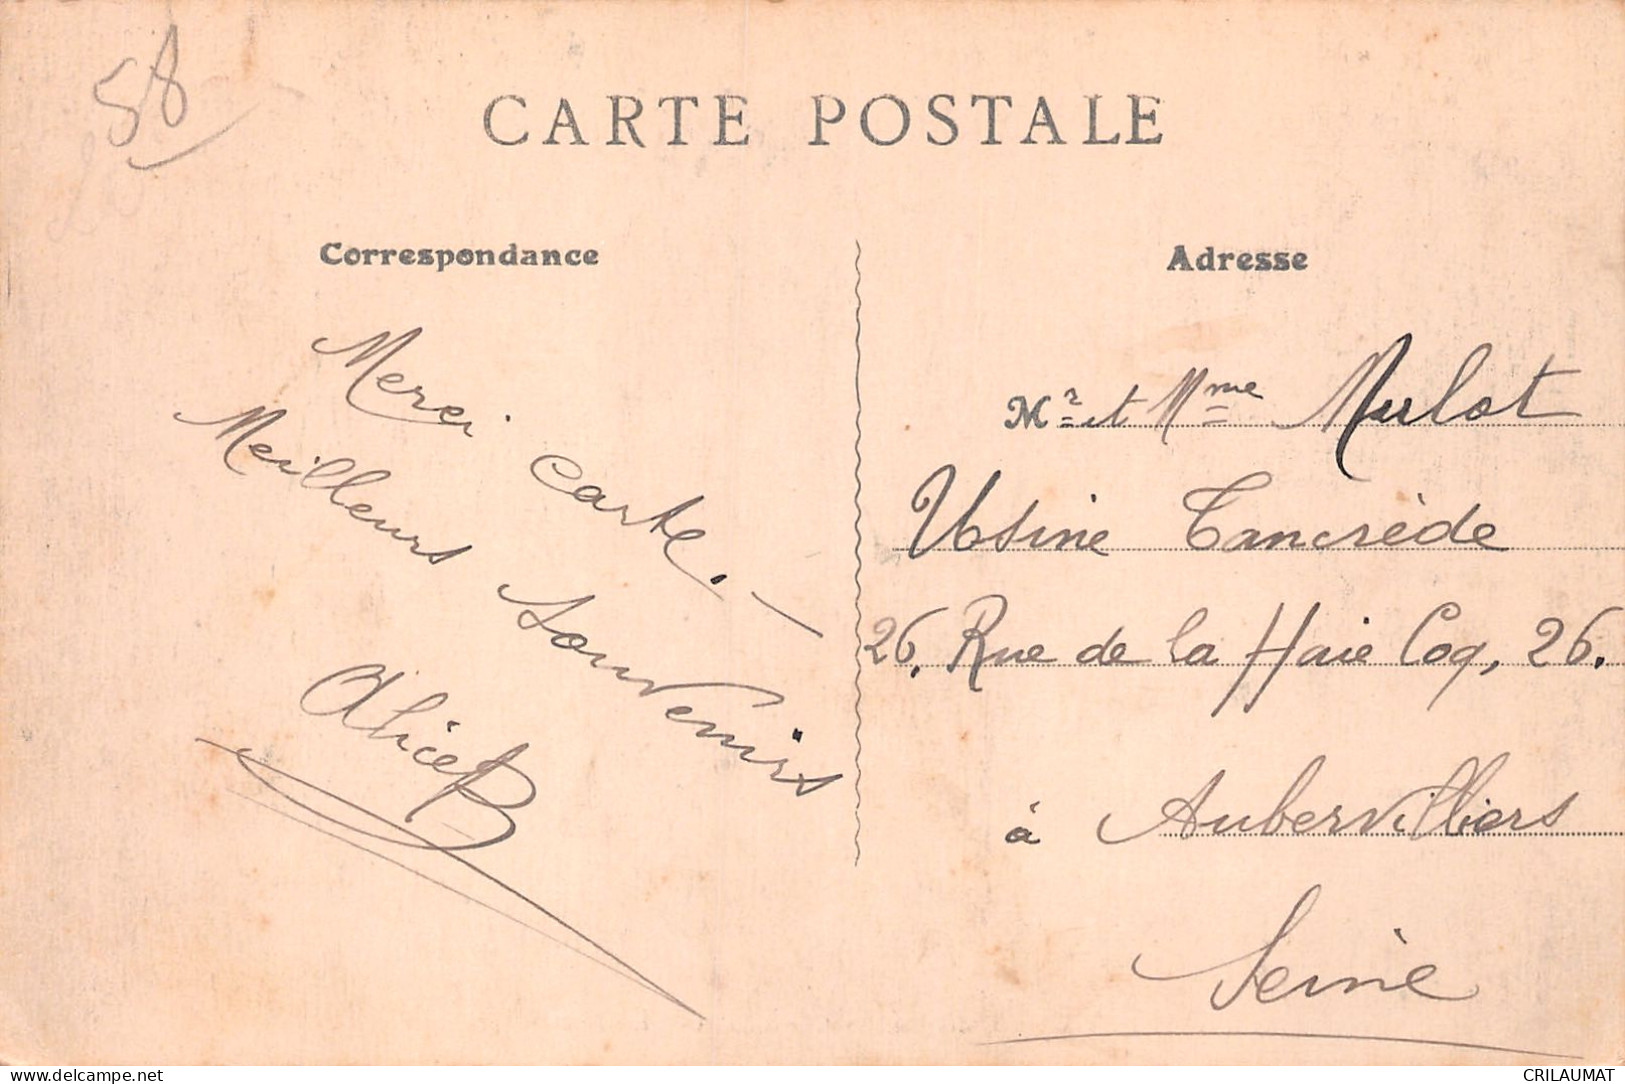 58
CARTE POSTALE
Correspondance
Merci carte. —
Meilleurs souvenirs
Alice B
Adresse
Mr et Mme Mulot
Usine Tancrède
26. Rue de la Haie Coq, 26.
à Aubervilliers
Seine
delcampe.net
CRILAUMAT